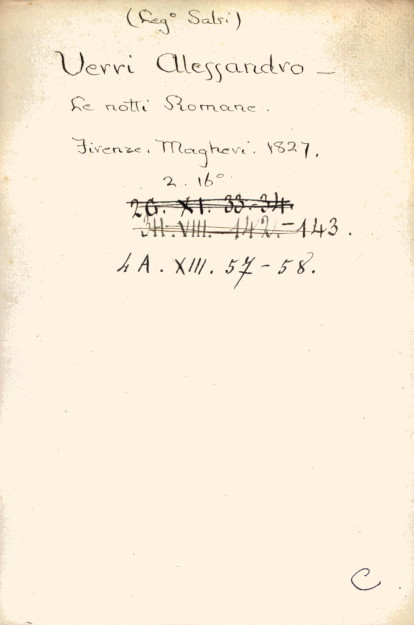 (Leg° Salri)
Verri Alessandro –
Le notti Romane.
Firenze. Magheri. 1827.
2. 16°
2G. XI. 33-34.
3H. VIII. 142.-143.
4A. XIII. 57-58.
C